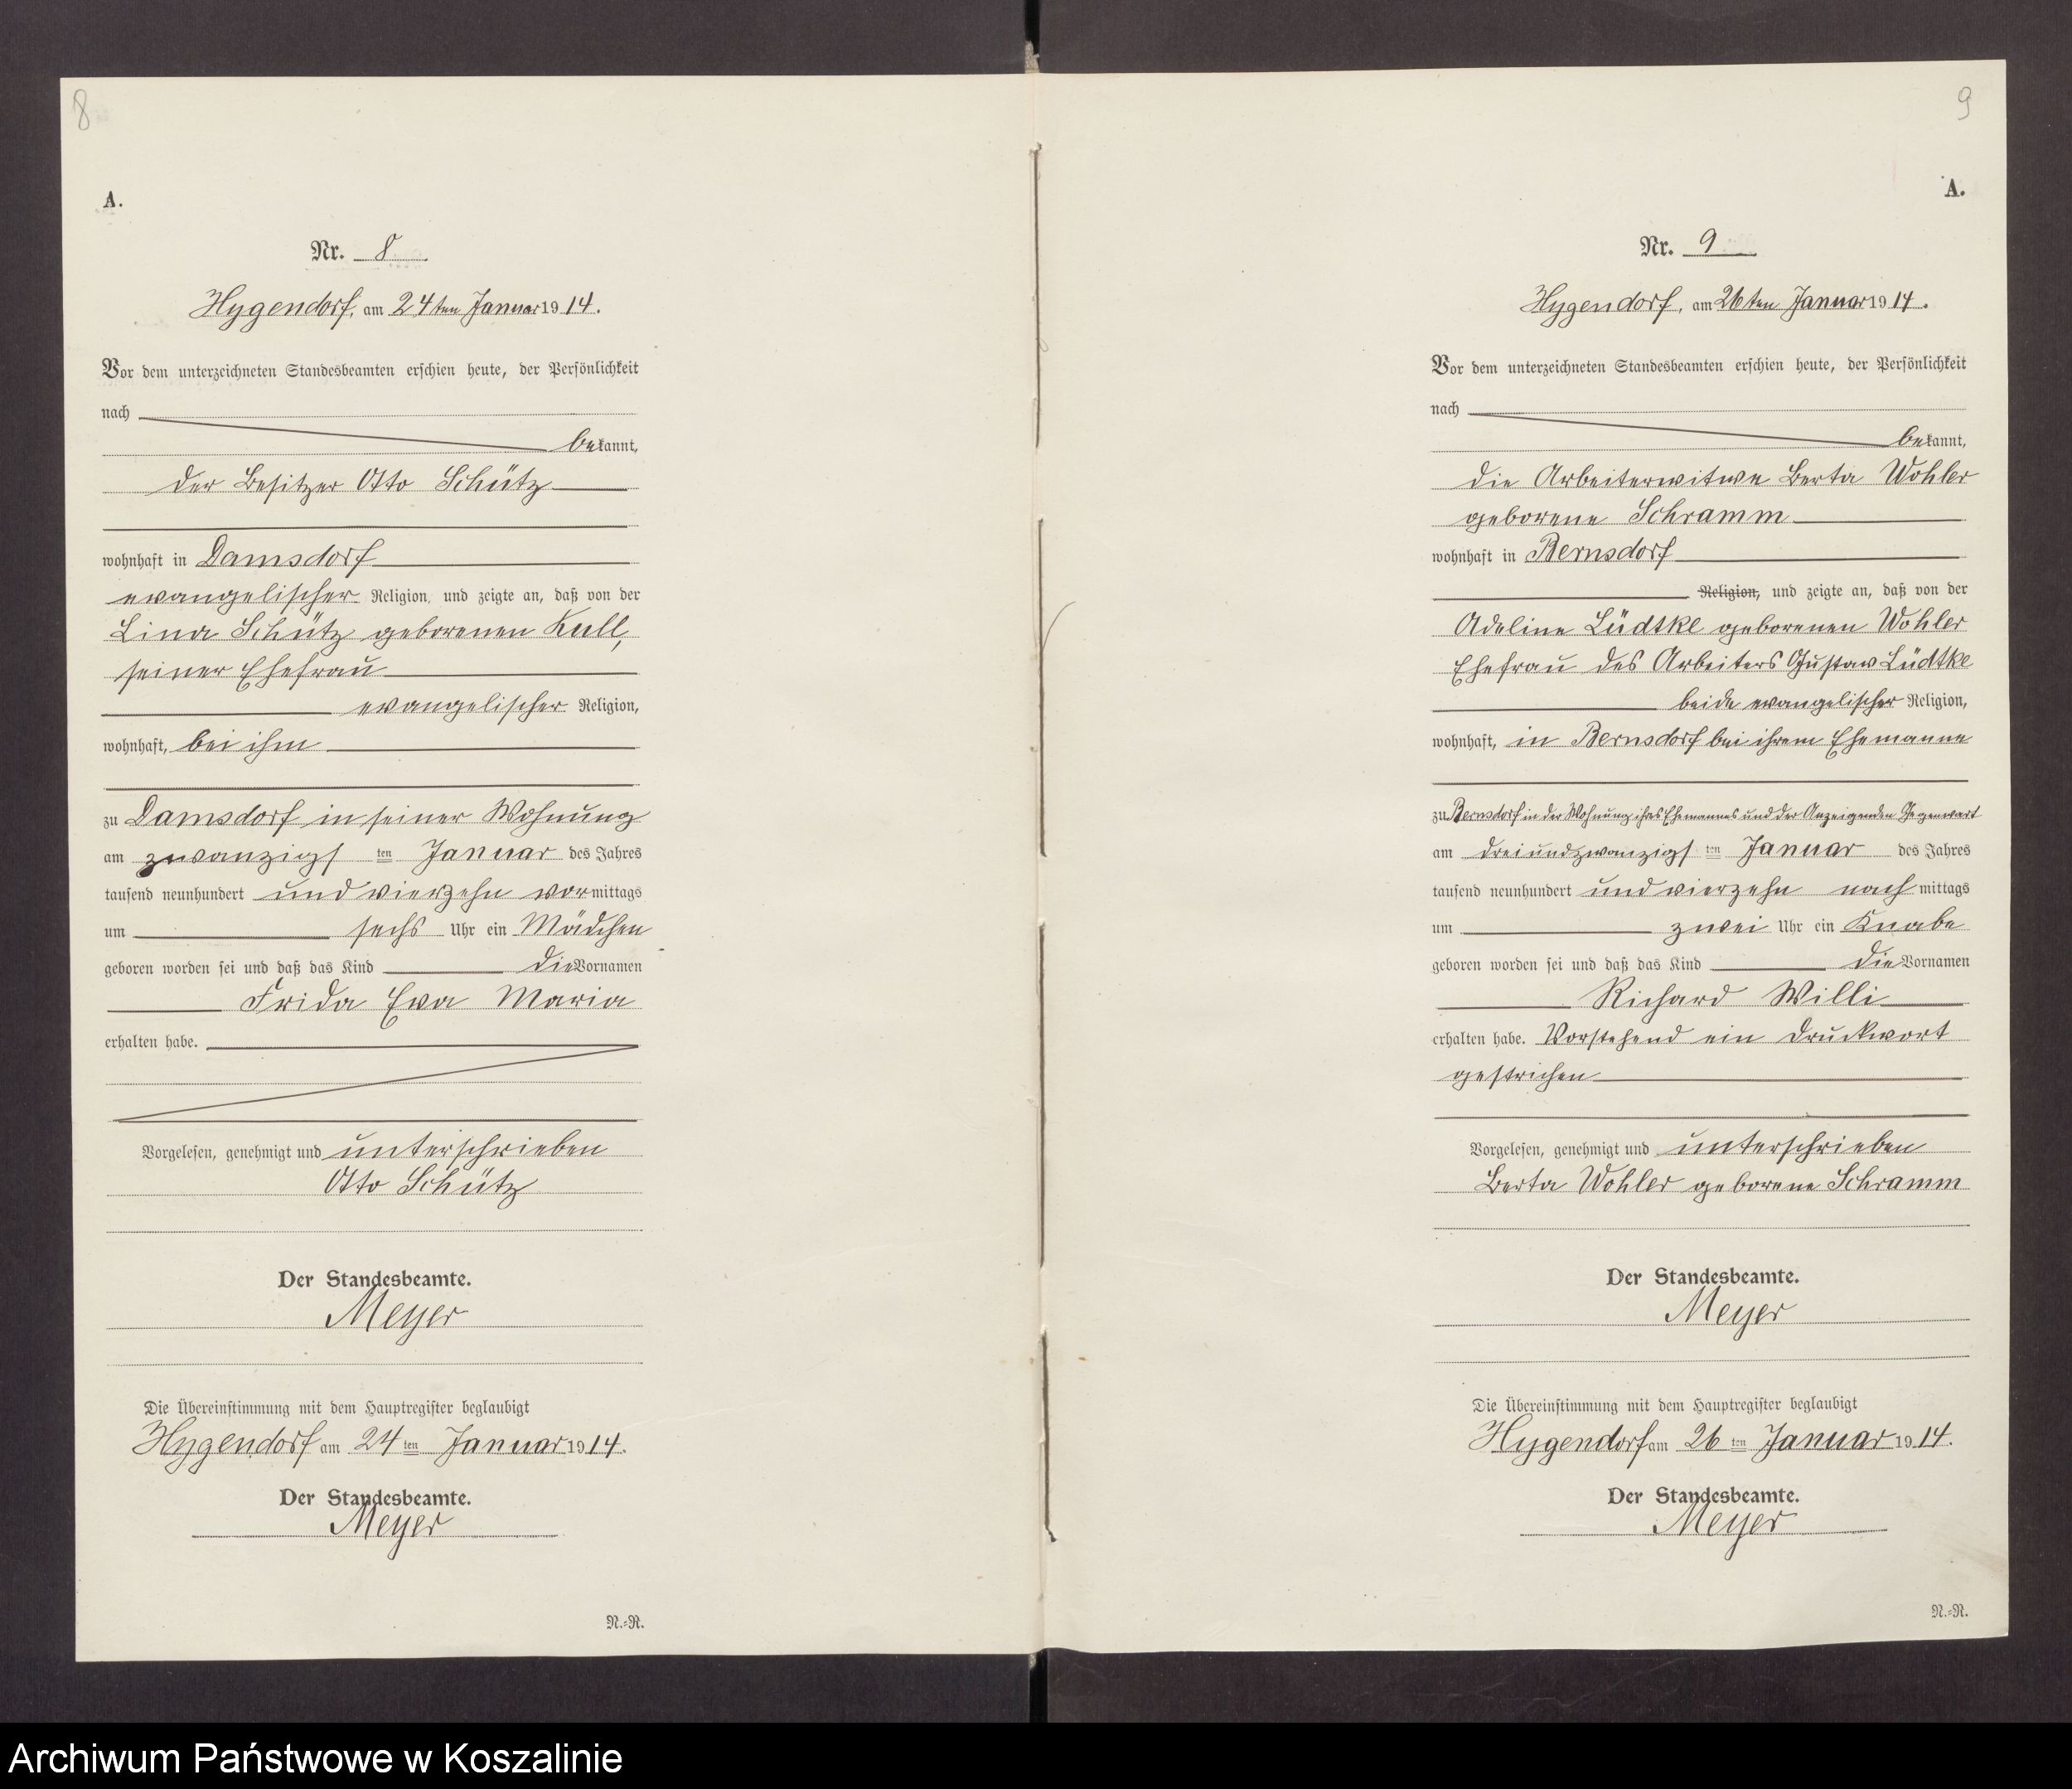 8
A.
Nr. 8
Hygendorf, am 24ten Januar 1914.
Vor dem unterzeichneten Standesbeamten erschien heute, der Persönlichkeit
nach
bekannt,
der Besitzer Otto Schütz
wohnhaft in Damsdorf
evangelischer Religion, und zeigte an, daß von der
Lina Schütz geborenen Kull,
seiner Ehefrau
evangelischer Religion,
wohnhaft, bei ihm
zu Damsdorf in seiner Wohnung
am zwanzigsten Januar des Jahres
tausend neunhundert und vierzehn vormittags
um sechs Uhr ein Mädchen
geboren worden sei und daß das Kind die Vornamen
Frida Eva Maria
erhalten habe.
Vorgelesen, genehmigt und unterschrieben
Otto Schütz
Der Standesbeamte.
Meyer
Die Übereinstimmung mit dem Hauptregister beglaubigt
Hygendorf am 24ten Januar 1914.
Der Standesbeamte.
Meyer
N.-R.
9
A.
Nr. 9
Hygendorf, am 26ten Januar 1914.
Vor dem unterzeichneten Standesbeamten erschien heute, der Persönlichkeit
nach
bekannt,
die Arbeiterwitwe Berta Wohler
geborene Schramm
wohnhaft in Bernsdorf
Religion, und zeigte an, daß von der
Adeline Lüdtke geborenen Wohler
Ehefrau des Arbeiters Gustav Lüdtke
beide evangelischer Religion,
wohnhaft, in Bernsdorf bei ihrem Ehemanne
zu Bernsdorf in der Wohnung ihres Ehemannes und der Anzeigenden Gegenwart
am dreiundzwanzigsten Januar des Jahres
tausend neunhundert und vierzehn nachmittags
um zwei Uhr ein Knabe
geboren worden sei und daß das Kind die Vornamen
Richard Willi
erhalten habe. Vorstehend ein Druckwort
gestrichen
Vorgelesen, genehmigt und unterschrieben
Berta Wohler geborene Schramm
Der Standesbeamte.
Meyer
Die Übereinstimmung mit dem Hauptregister beglaubigt
Hygendorf am 26ten Januar 1914.
Der Standesbeamte.
Meyer
N.-R.
Archiwum Państwowe w Koszalinie